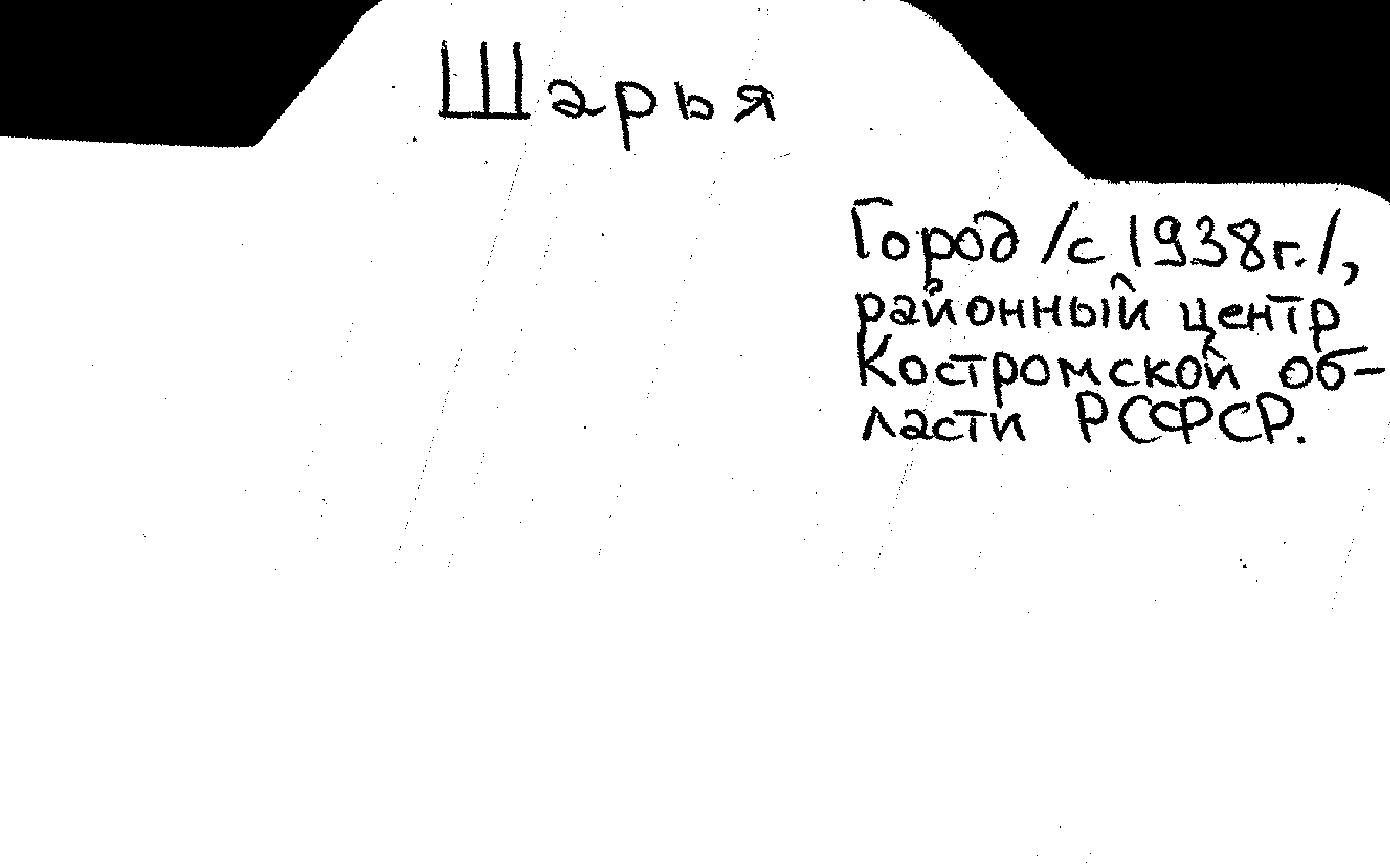 Шарья
Город /с 1938г./,
районный центр
Костромской об-
ласти РСФСР.